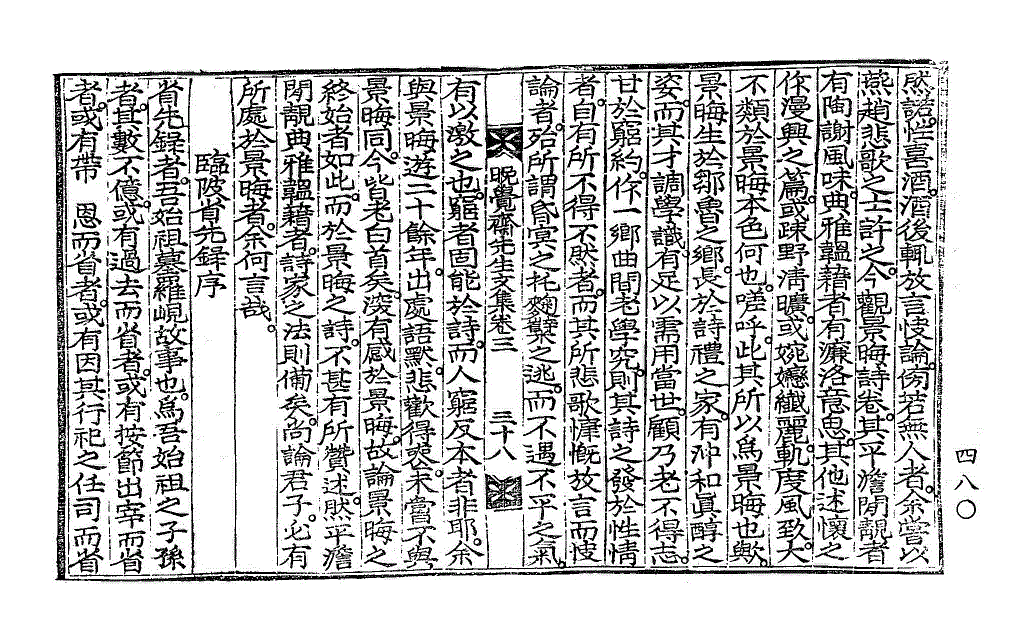 然諾性喜酒。酒後輒放言悖論。傍若無人者。余嘗以
燕趙悲歌之士許之。今觀景晦詩卷。其平澹閒靚者
有陶謝風味。典雅韞藉者有濂洛意思。其他述懷之
作漫興之篇。或疎野淸曠。或婉嬺纖麗。軌度風致。大
不纇於景晦本色何也。嗟呼。此其所以爲景晦也歟。
景晦生於鄒魯之鄕。長於詩禮之家。有冲和眞醇之
姿。而其才調學識。有足以需用當世。顧乃老不得志。
甘於窮約。作一鄕曲間老學究。則其詩之發於性情
者。自有所不得不然者。而其所悲歌慷慨放言而悖
論者。殆所謂昏冥之托麴糱之逃。而不遇不平之氣。
晩覺齋先生文集卷三 三十八
有以激之也。窮者固能於詩。而人窮反本者非耶。余
與景晦遊二十餘年。出處語默。悲歡得喪。未嘗不與
景晦同。今皆老白首矣。深有感於景晦。故論景晦之
終始者如此。而於景晦之詩。不甚有所贊述。然平澹
閒靚典雅韞藉者。詩家之法則備矣。尙論君子。必有
所處於景晦者。余何言哉。
臨陂省先錄序
省先錄者。吾始祖墓羅峴故事也。爲吾始祖之子孫
者。其數不億。或有過去而省者。或有按節出宰而省
者。或有帶 恩而省者。或有因其行祀之任司而省
四八〇